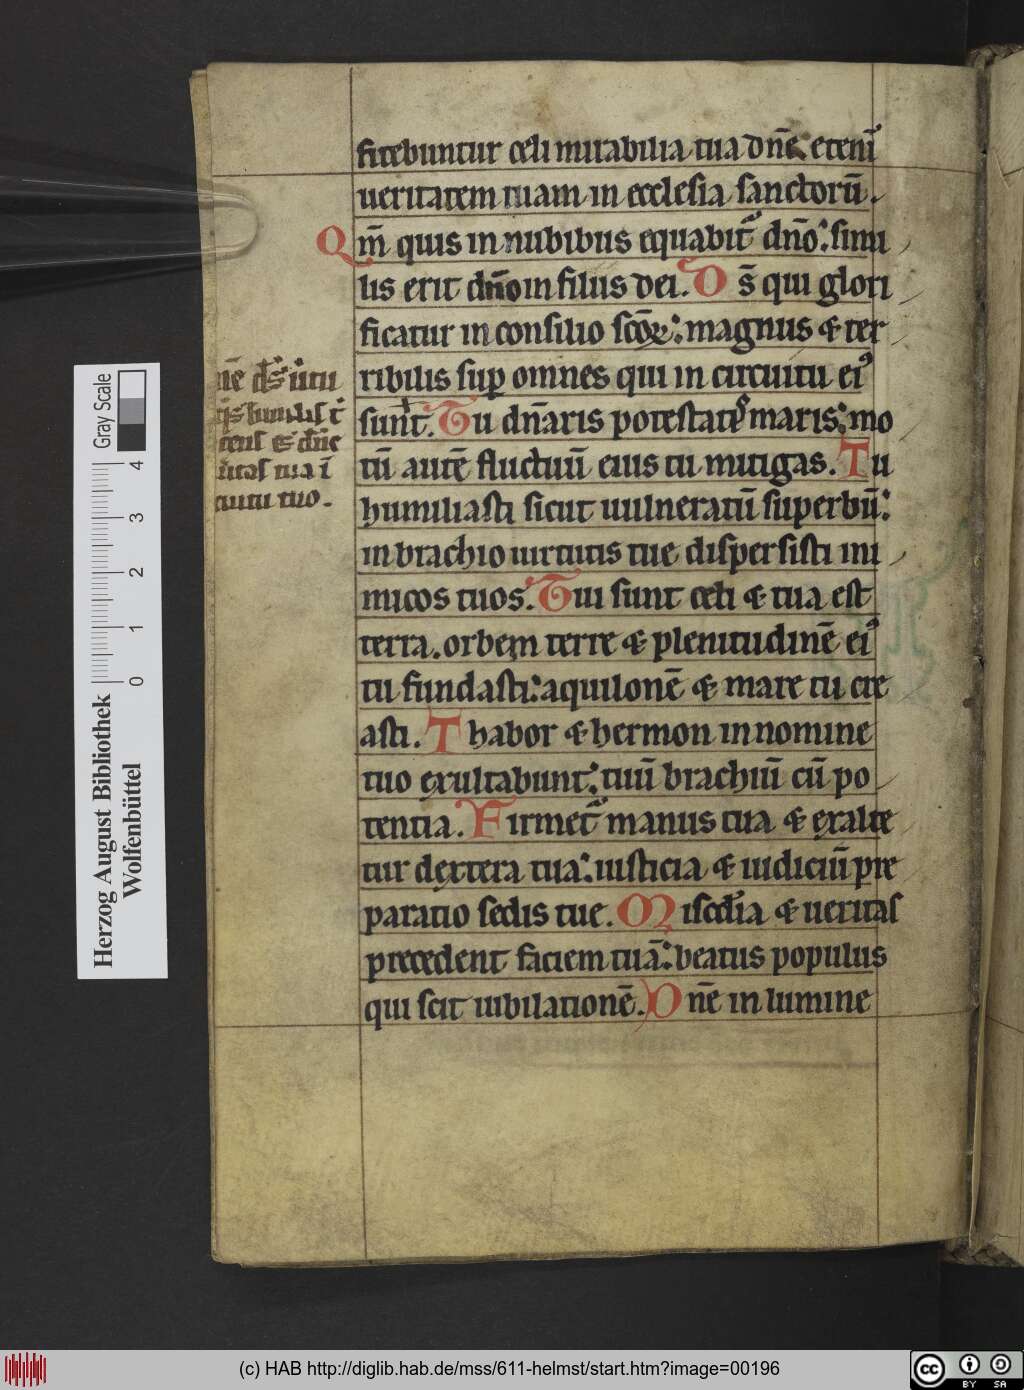 fitebuntur celi mirabilia tua dn̄e: eteni᷑
ueritatem tuam in ecclesia sanctorū.
Qm̄ quis in nubibus equabit᷑ dn̄o: simi
lis erit dn̄o in filiis dei. Ds̄ qui glori
ficatur in consilio sc̄oꝝ: magnus & ter
ribilis suꝑ omnes qui in circuitu eiꝰ
sunt. Tu dn̄aris potestati maris: mo
tū autē fluctuū eius tu mitigas. Tu
humiliasti sicut uulneratū superbū:
in brachio uirtutis tue dispersisti ini
micos tuos. Tui sunt celi & tua est
terra. orbem terre & plenitudinē eiꝰ
tu fundasti: aquilonē & mare tu cre
asti. Thabor & hermon in nomine
tuo exultabunt: tuū brachiū cū po
tentia. Firmet᷑ manus tua & exalte
tur dextera tua: iusticia & iudiciū pre
paratio sedis tue. Misc̄dia & ueritas
precedent faciem tuā: beatus populus
qui scit iubilationē. Dn̄e in lumine
nē ds̄ uirtu
q̄s similis t̄
tens es dn̄e
ritas tua ī
cuitu tuo.
Herzog August Bibliothek
Wolfenbüttel
Gray Scale
0 1 2 3 4
(c) HAB http://diglib.hab.de/mss/611-helmst/start.htm?image=00196
cc BY SA